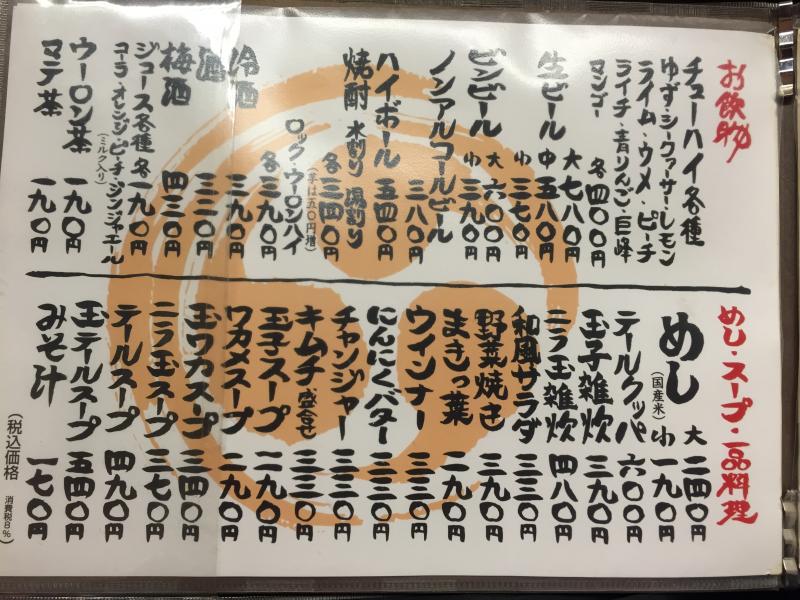 お飲物
チューハイ各種
ゆず・シークァーサー・レモン
ライム・ウメ・ピーチ
ライチ・青りんご・巨峰
マンゴー 各四〇〇円
生ビール 大 七八〇円
中 五八〇円
小 三七〇円
ビンビール 大 六〇〇円
小 三九〇円
ノンアルコールビール
二八〇円
ハイボール 五四〇円
焼酎 水割り 湯割り
各三四〇円
ロック・ウーロンハイ
(芋は五〇円増)
各三九〇円
冷酒 三九〇円
酒 三二〇円
梅酒 四三〇円
ジュース各種 各一九〇円
コーラ・オレンジ・ピーチ・ジンジャエール
ウーロン茶 一九〇円
(ミルク入り)
マテ茶 一九〇円
めし・スープ・一品料理
めし 大 二四〇円
(国産米) 小 一九〇円
テールクッパ 六〇〇円
玉子雑炊 三九〇円
ニラ玉雑炊 四八〇円
和風サラダ 三三〇円
野菜焼き 三九〇円
まきっ葉 二九〇円
ウインナー 三三〇円
にんにくバター 三三〇円
チャンジャー 三三〇円
キムチ(盛合せ) 三三〇円
玉子スープ 二九〇円
ワカメスープ 二九〇円
玉ワカスープ 三四〇円
ニラ玉スープ 三七〇円
テールスープ 四九〇円
玉テールスープ 五四〇円
みそ汁 一七〇円
(税込価格 消費税8%)